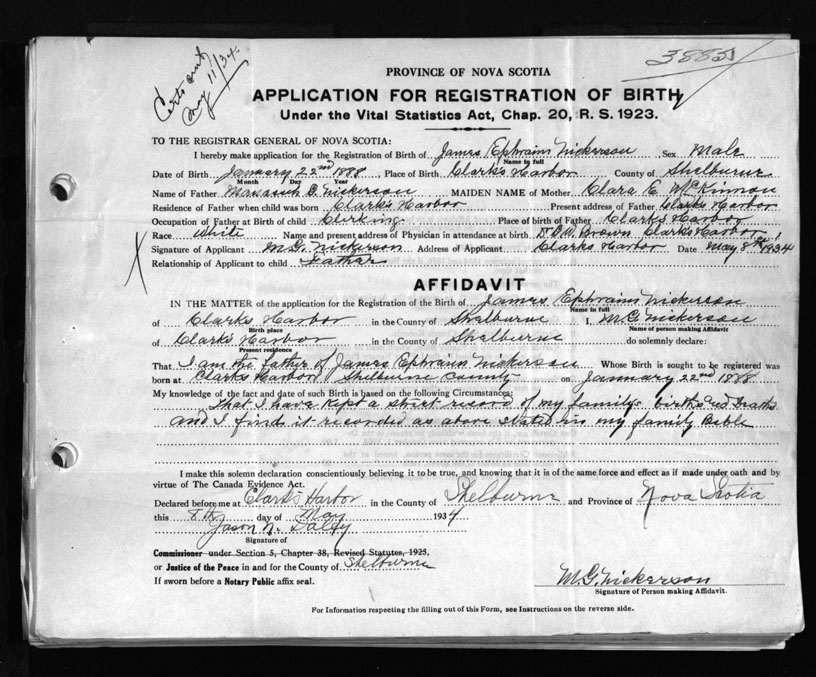 May 11/34
3885
PROVINCE OF NOVA SCOTIA
APPLICATION FOR REGISTRATION OF BIRTH
Under the Vital Statistics Act, Chap. 20, R. S. 1923.
TO THE REGISTRAR GENERAL OF NOVA SCOTIA:
I hereby make application for the Registration of Birth of James Ephraim Nickerson Sex Male
Name in full
Date of Birth January 22nd 1888, Place of Birth Clarks Harbor County of Shelburne
Month Day Year
Name of Father G. Nickerson MAIDEN NAME of Mother Clara E. McKinnon
Residence of Father when child was born Clarks Harbor Present address of Father Clarks Harbor
Occupation of Father at Birth of child Place of birth of Father Clarks Harbor
Race White Name and present address of Physician in attendance at birth Brown Clarks Harbor
Signature of Applicant M.G. Nickerson Address of Applicant Clarks Harbor Date May 8th 1934
Relationship of Applicant to child Father
AFFIDAVIT
IN THE MATTER of the application for the Registration of the Birth of James Ephraim Nickerson
Name in full
of Clarks Harbor in the County of Shelburne I, M.G. Nickerson
Birth place Name of person making Affidavit
of Clarks Harbor in the County of Shelburne do solemnly declare:
Present residence
That I am the father of James Ephraim Nickerson Whose Birth is sought to be registered was
born at Clarks Harbor Shelburne County on January 22nd 1888
My knowledge of the fact and date of such Birth is based on the following Circumstances:
That I have kept a strict record of my family births and Deaths
and I find it recorded as above stated in my family Bible
I make this solemn declaration conscientiously believing it to be true, and knowing that it is of the same force and effect as if made under oath and by
virtue of The Canada Evidence Act.
Declared before me at Clark's Harbor in the County of Shelburne and Province of Nova Scotia
this 8th day of May 1934
Jason N.
Signature of
Commissioner under Section 5, Chapter 38, Revised Statutes, 1923,
or Justice of the Peace in and for the County of Shelburne
If sworn before a Notary Public affix seal.
M.G. Nickerson
Signature of Person making Affidavit.
For Information respecting the filling out of this Form, see Instructions on the reverse side.